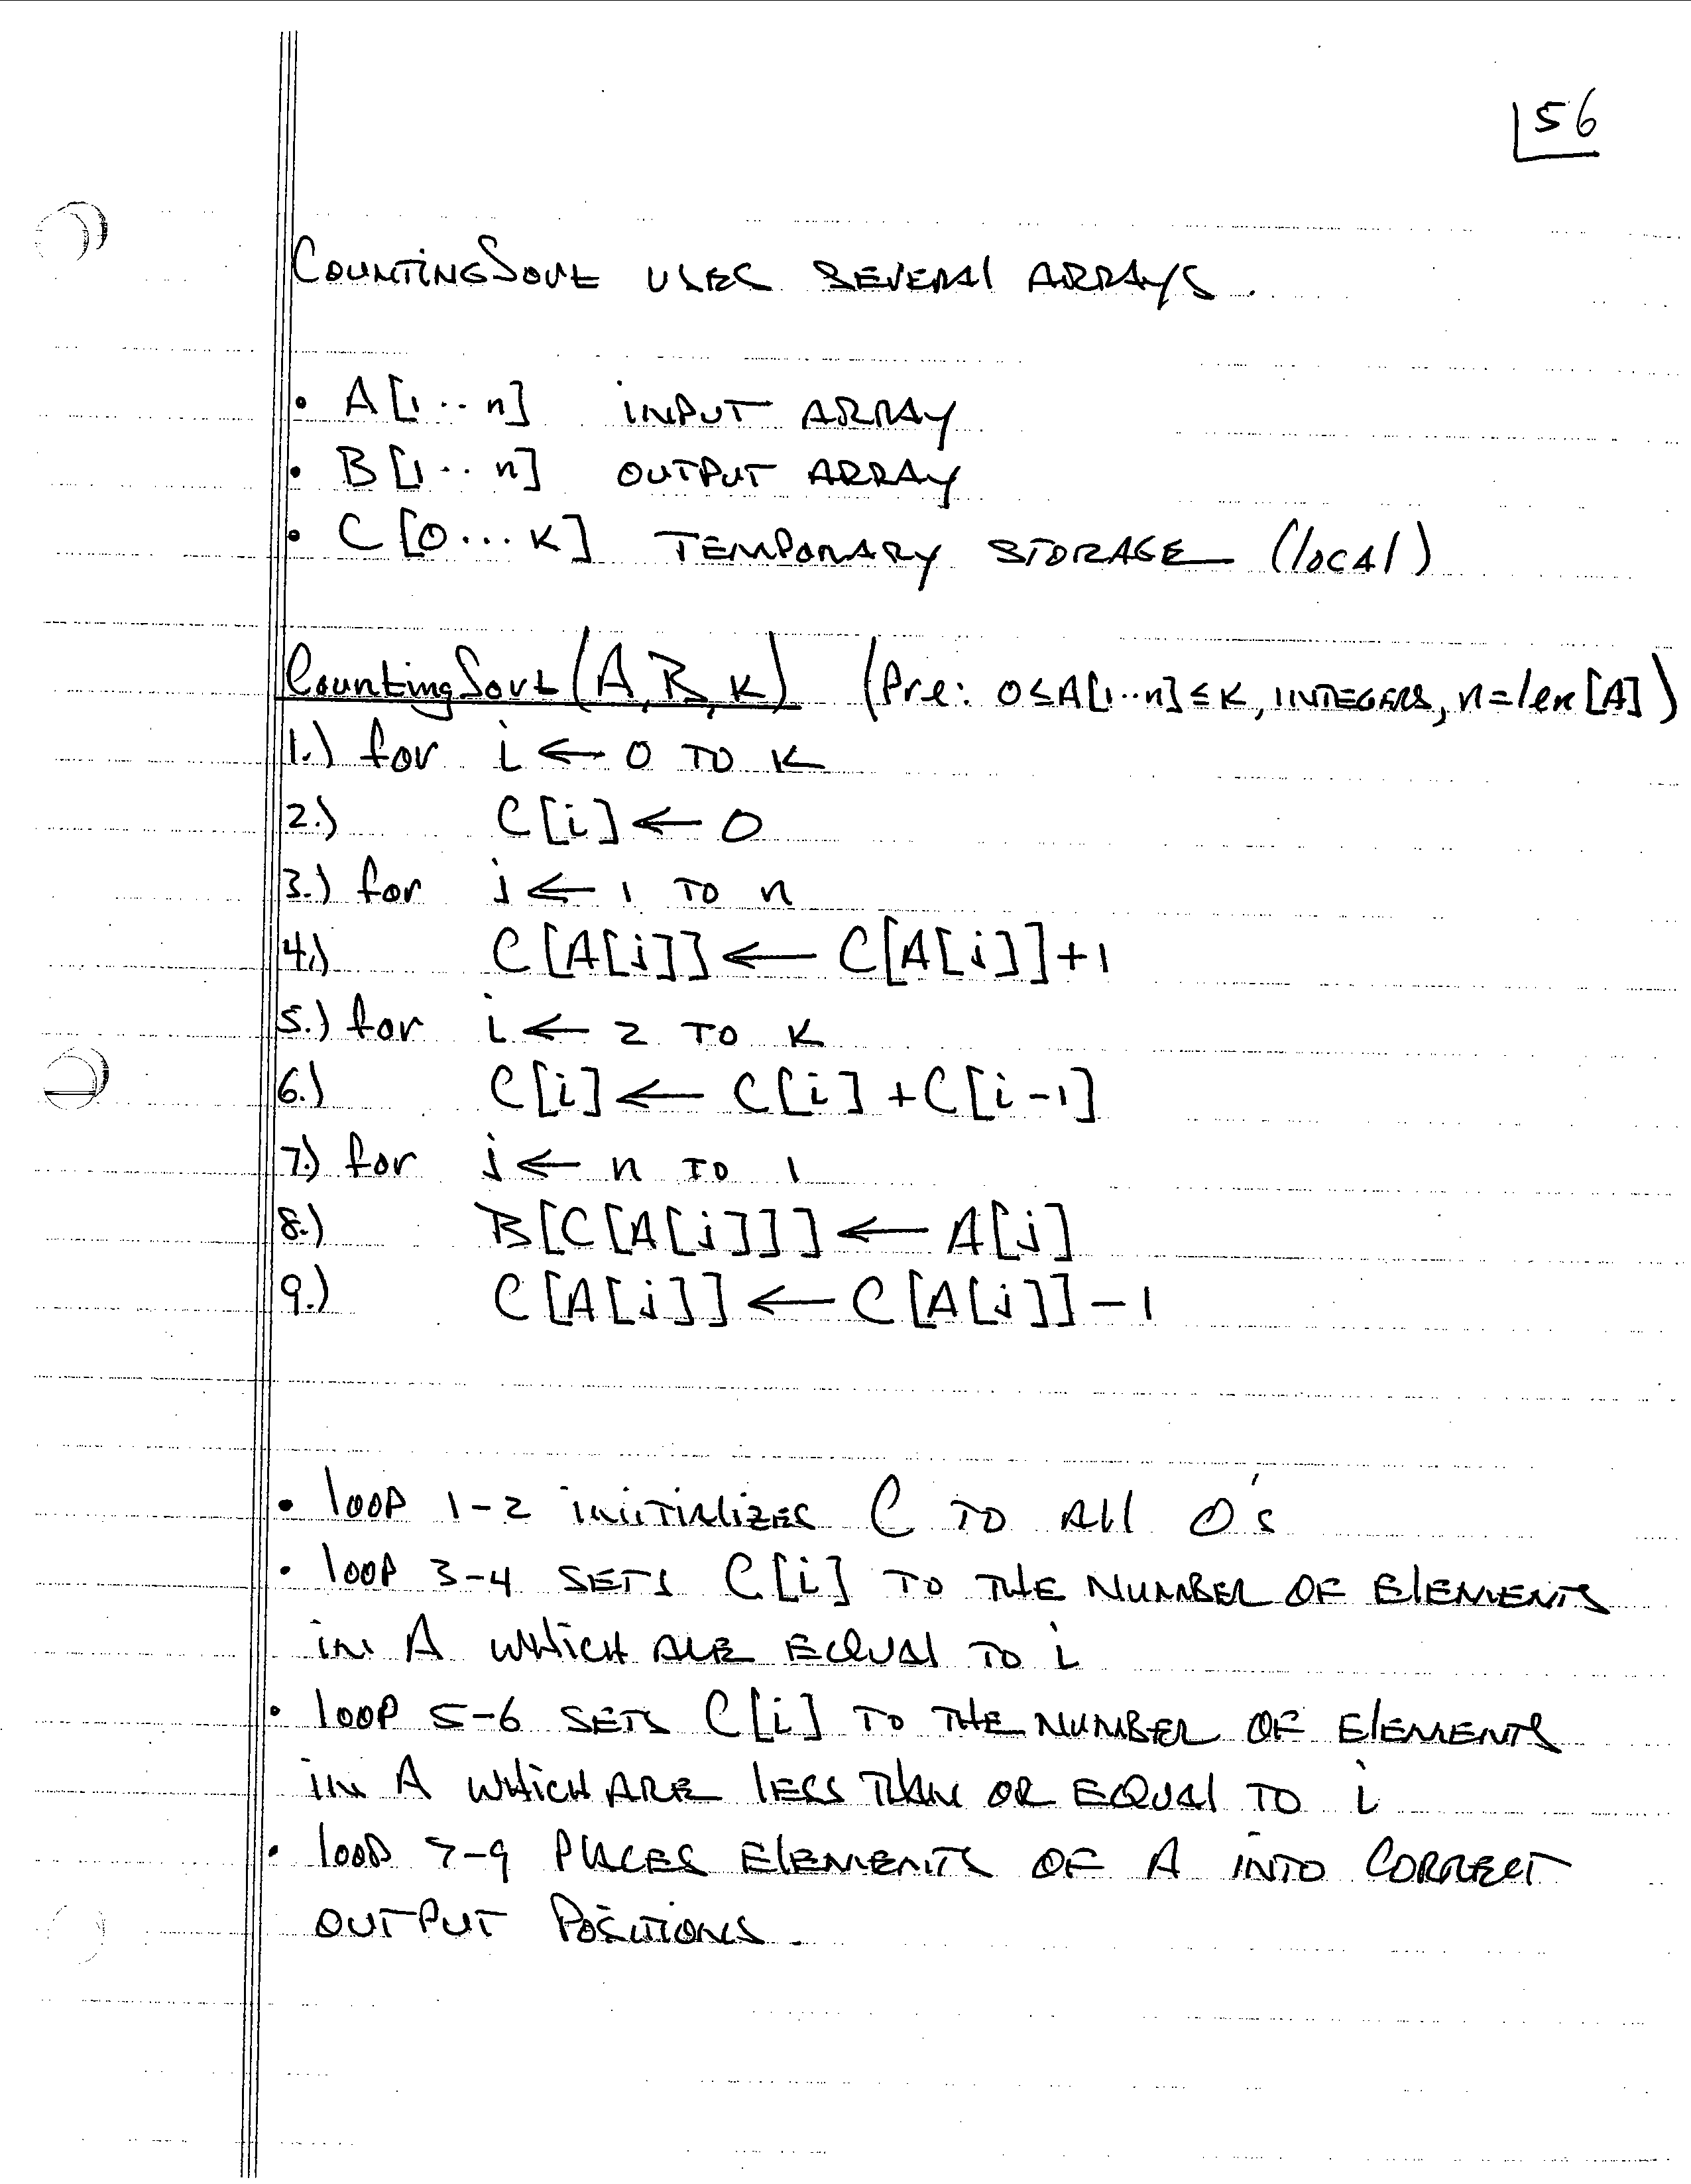 56
CountingSort uses several arrays.
• A[1··n] input array
• B[1··n] output array
• C[0···k] temporary storage (local)
CountingSort(A, B, k) (Pre: 0≤A[1··n]≤k, integers, n=len[A])
1.) for i ← 0 to k
2.) C[i] ← 0
3.) for j ← 1 to n
4.) C[A[j]] ← C[A[j]]+1
5.) for i ← 2 to k
6.) C[i] ← C[i]+C[i-1]
7.) for j ← n to 1
8.) B[C[A[j]]] ← A[j]
9.) C[A[j]] ← C[A[j]]-1
• loop 1-2 initializes C to all 0's
• loop 3-4 sets C[i] to the number of elements
in A which are equal to i
• loop 5-6 sets C[i] to the number of elements
in A which are less than or equal to i
• loop 7-9 places elements of A into correct
output positions.